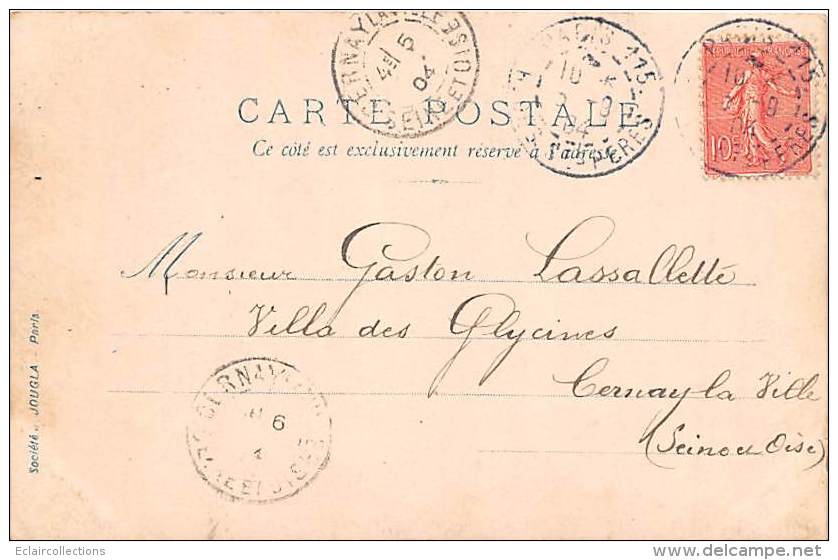 CERNAY LA VILLE
SEINE ET OISE
5
04
PARIS 115
10
CARTE POSTALE
Ce côté est exclusivement réservé à l'adresse
Monsieur Gaston Lassallette
Villa des Glycines
Cernay la Ville
(Seine et Oise)
6
Société JOUGLA - Paris.
Eclaircollections
delcampe.net